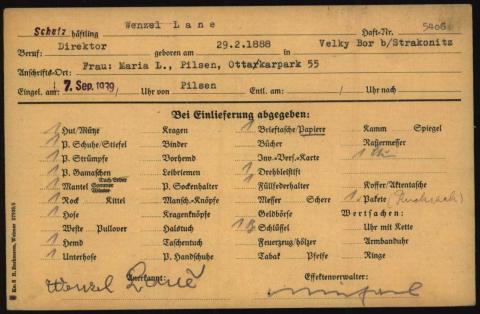 Wenzel Lane
Schutz häftling Haft-Nr. 5408
Beruf: Direktor geboren am 29.2.1888 in Velky Bor b/Strakonitz
Anschrifts-Ort: Frau: Maria L., Pilsen, Ottakarpark 55
Eingel. am: 7. Sep. 1939 Uhr von Pilsen Entl. am: Uhr nach
Bei Einlieferung abgegeben:
1 Hut/Mütze Kragen 1 Brieftasche/Papiere Kamm Spiegel
1 P. Schuhe/Stiefel Binder Bücher Rasiermesser
1 P. Strümpfe Vorhemd Inv.-Vers.-Karte 1
P. Gamaschen Leibriemen 1 Drehbleistift
1 Mantel Tuch Leder Sommer Winter P. Sockenhalter Füllfederhalter Koffer/Aktentasche
1 Rock Kittel Mansch.-Knöpfe Messer Schere 1 Pakete (Rucksack)
1 Hose Kragenknöpfe Geldbörse Wertsachen:
Weste Pullover Halstuch 1 Schlüssel Uhr mit Kette
1 Hemd Taschentuch Feuerzeug/hölzer Armbanduhr
1 Unterhose P. Handschuhe Tabak Pfeife Ringe
Anerkannt: Effektenverwalter:
Wenzel Laně